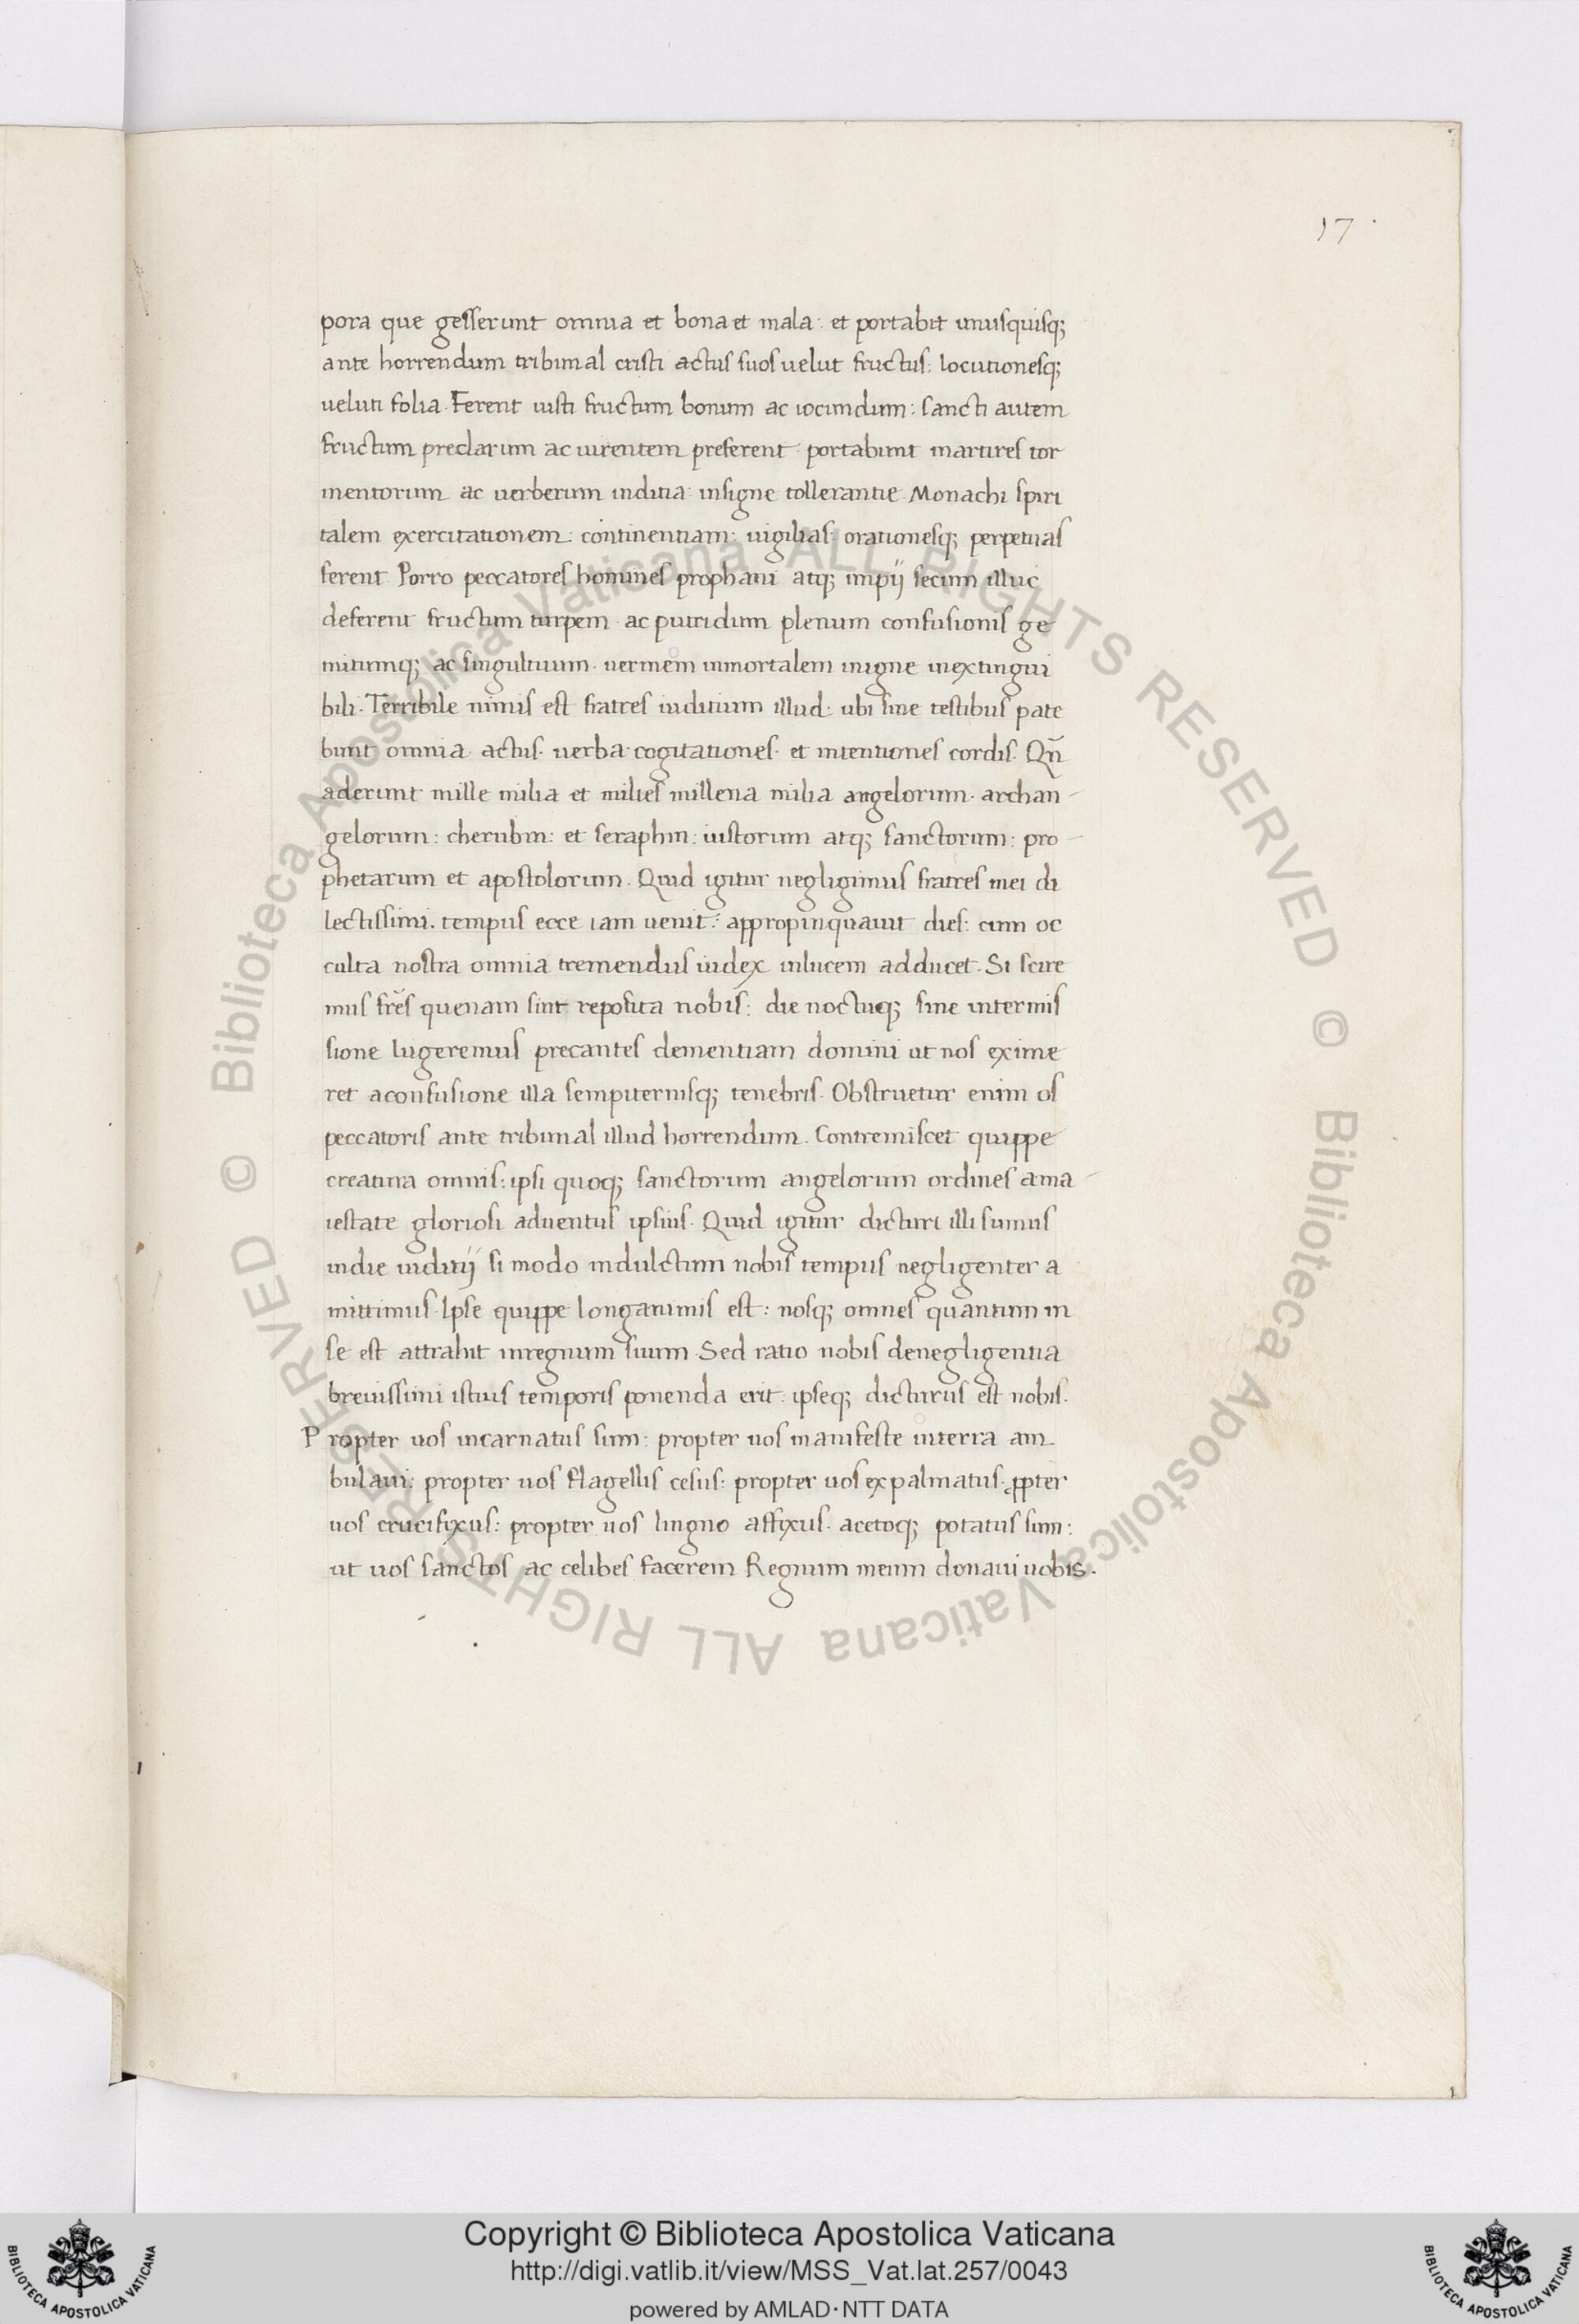 17
pora que gesserunt omnia et bona et mala: et portabit unusquisq;
ante horrendum tribunal cristi actus suos uelut fructus: locutionesq;
ueluti folia. Ferent iusti fructum bonum ac iocundum: sancti autem
fructum preclarum ac uirentem preferent. portabunt martires tor
mentorum ac uerberum inditia: insigne tollerantie. Monachi spiri
talem exercitationem: continentiam: uigilias: orationesq; perpetuas
ferent. Porro peccatores homines prophani atq; impij secum illuc
deferent fructum turpem. ac putridum plenum confusionis ge
mitumq; ac singultuum. uermem inmortalem inigne inextingui
bili. Terribile nimis est fratres iuditium illud. ubi sine testibus pate
bunt omnia actus. uerba. cogitationes. et intentiones cordis. Qn̄
aderunt mille milia et milies millena milia angelorum. archan-
gelorum: cherubin: et seraphin: iustorum atq; sanctorum: pro-
phetarum et apostolorum. Quid igitur negligimus fratres mei di
lectissimi. tempus ecce iam uenit: appropinquauit dies: cum oc
culta nostra omnia tremendus iudex inlucem adducet. Si scire
mus fr̄es quenam sint reposita nobis: die noctuq; sine intermis
sione lugeremus precantes clementiam domini ut nos exime
ret aconfusione illa sempiternisq; tenebris. Obstruetur enim os
peccatoris ante tribunal illud horrendum. Contremiscet quippe
creatura omnis: ipsi quoq; sanctorum angelorum ordines ama-
iestate gloriosi aduentus ipsius. Quid igitur dicturi illi sumus
indie iuditij si modo indulctum nobis tempus negligenter a
mittimus. Ipse quippe longanimis est: nosq; omnes quantum in
se est attrahit inregnum suum. Sed ratio nobis denegligentia
breuissimi istius temporis ponenda erit: ipseq; dicturus est nobis.
Propter uos incarnatus sum: propter uos manifeste interra am
bulaui: propter uos flagellis cesus: propter uos expalmatus. ꝓpter
uos crucifixus: propter uos lingno affixus. acetoq; potatus sum:
ut uos sanctos ac celibes facerem Regnum meum donaui uobis.
© Biblioteca Apostolica Vaticana ALL RIGHTS RESERVED
© Biblioteca Apostolica Vaticana ALL RIGHTS RESERVED
Copyright © Biblioteca Apostolica Vaticana
http://digi.vatlib.it/view/MSS_Vat.lat.257/0043
powered by AMLAD·NTT DATA
BIBLIOTECA APOSTOLICA VATICANA
BIBLIOTECA APOSTOLICA VATICANA